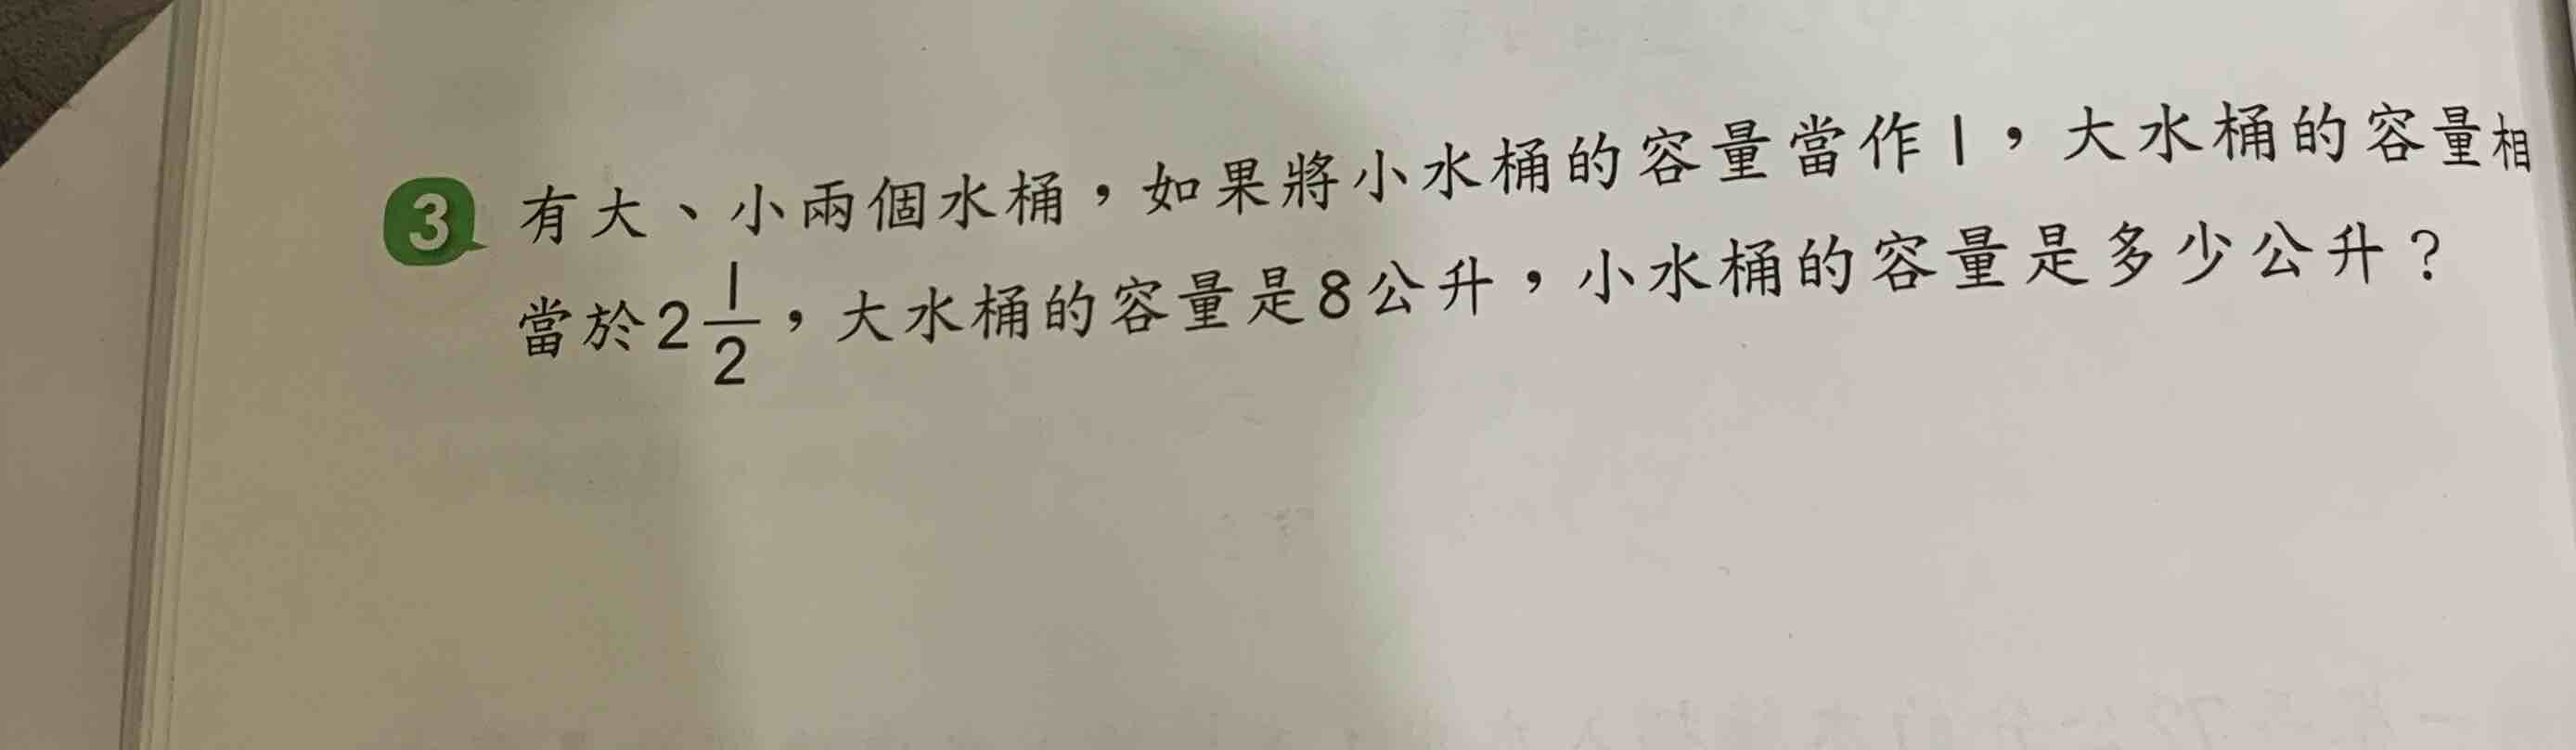 3 有大、小兩個水桶，如果將小水桶的容量當作1，大水桶的容量相
當於2 1/2，大水桶的容量是8公升，小水桶的容量是多少公升？